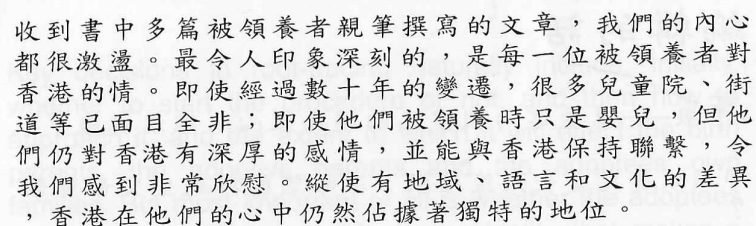 收到書中多篇被領養者親筆撰寫的文章，我們的內心
都很激盪。最令人印象深刻的，是每一位被領養者對
香港的情。即使經過數十年的變遷，很多兒童院、街
道等已面目全非；即使他們被領養時只是嬰兒，但他
們仍對香港有深厚的感情，並能與香港保持聯繫，令
我們感到非常欣慰。縱使有地域、語言和文化的差異
，香港在他們的心中仍然佔據著獨特的地位。